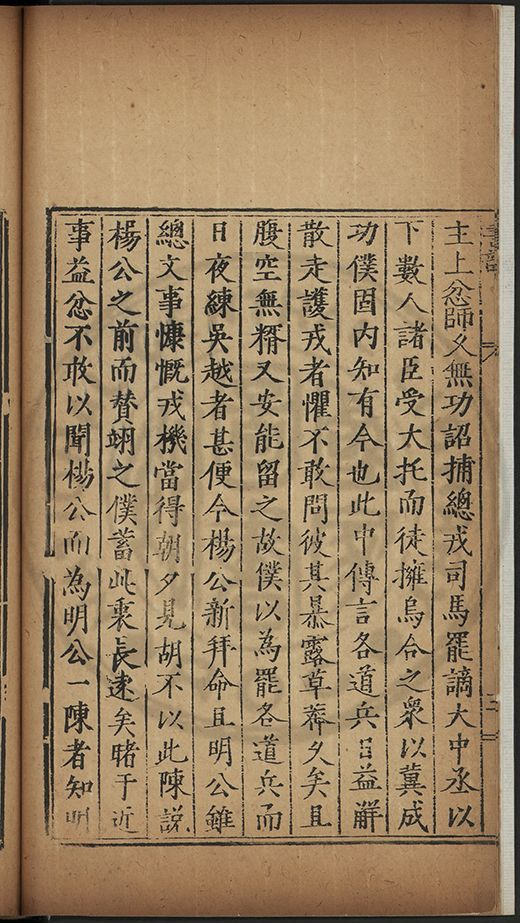 主上忿師久無功詔捕總戎司馬罷謫大中丞以
下數人諸臣受大托而徒擁烏合之衆以冀成
功僕固内知有今也此中傳言各道兵日益解
散走護戎者懼不敢問彼其暴露草莽久矣且
腹空無糈又安能留之故僕以為罷各道兵而
日夜練吳越者甚便今楊公新拜命且明公雖
總文事慷慨戎機當得朝夕見胡不以此陳説
楊公之前而替翊之僕蓄此裏長逑矣睹于近
事益忿不敢以聞楊公而為明公一陳者知明